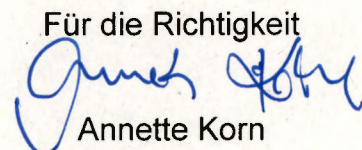 Für die Richtigkeit
Annette Korn